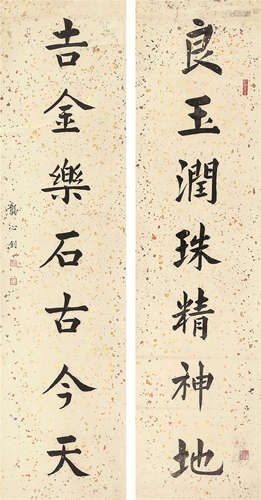 良玉潤珠精神地
吉金樂石古今天
龔心釗